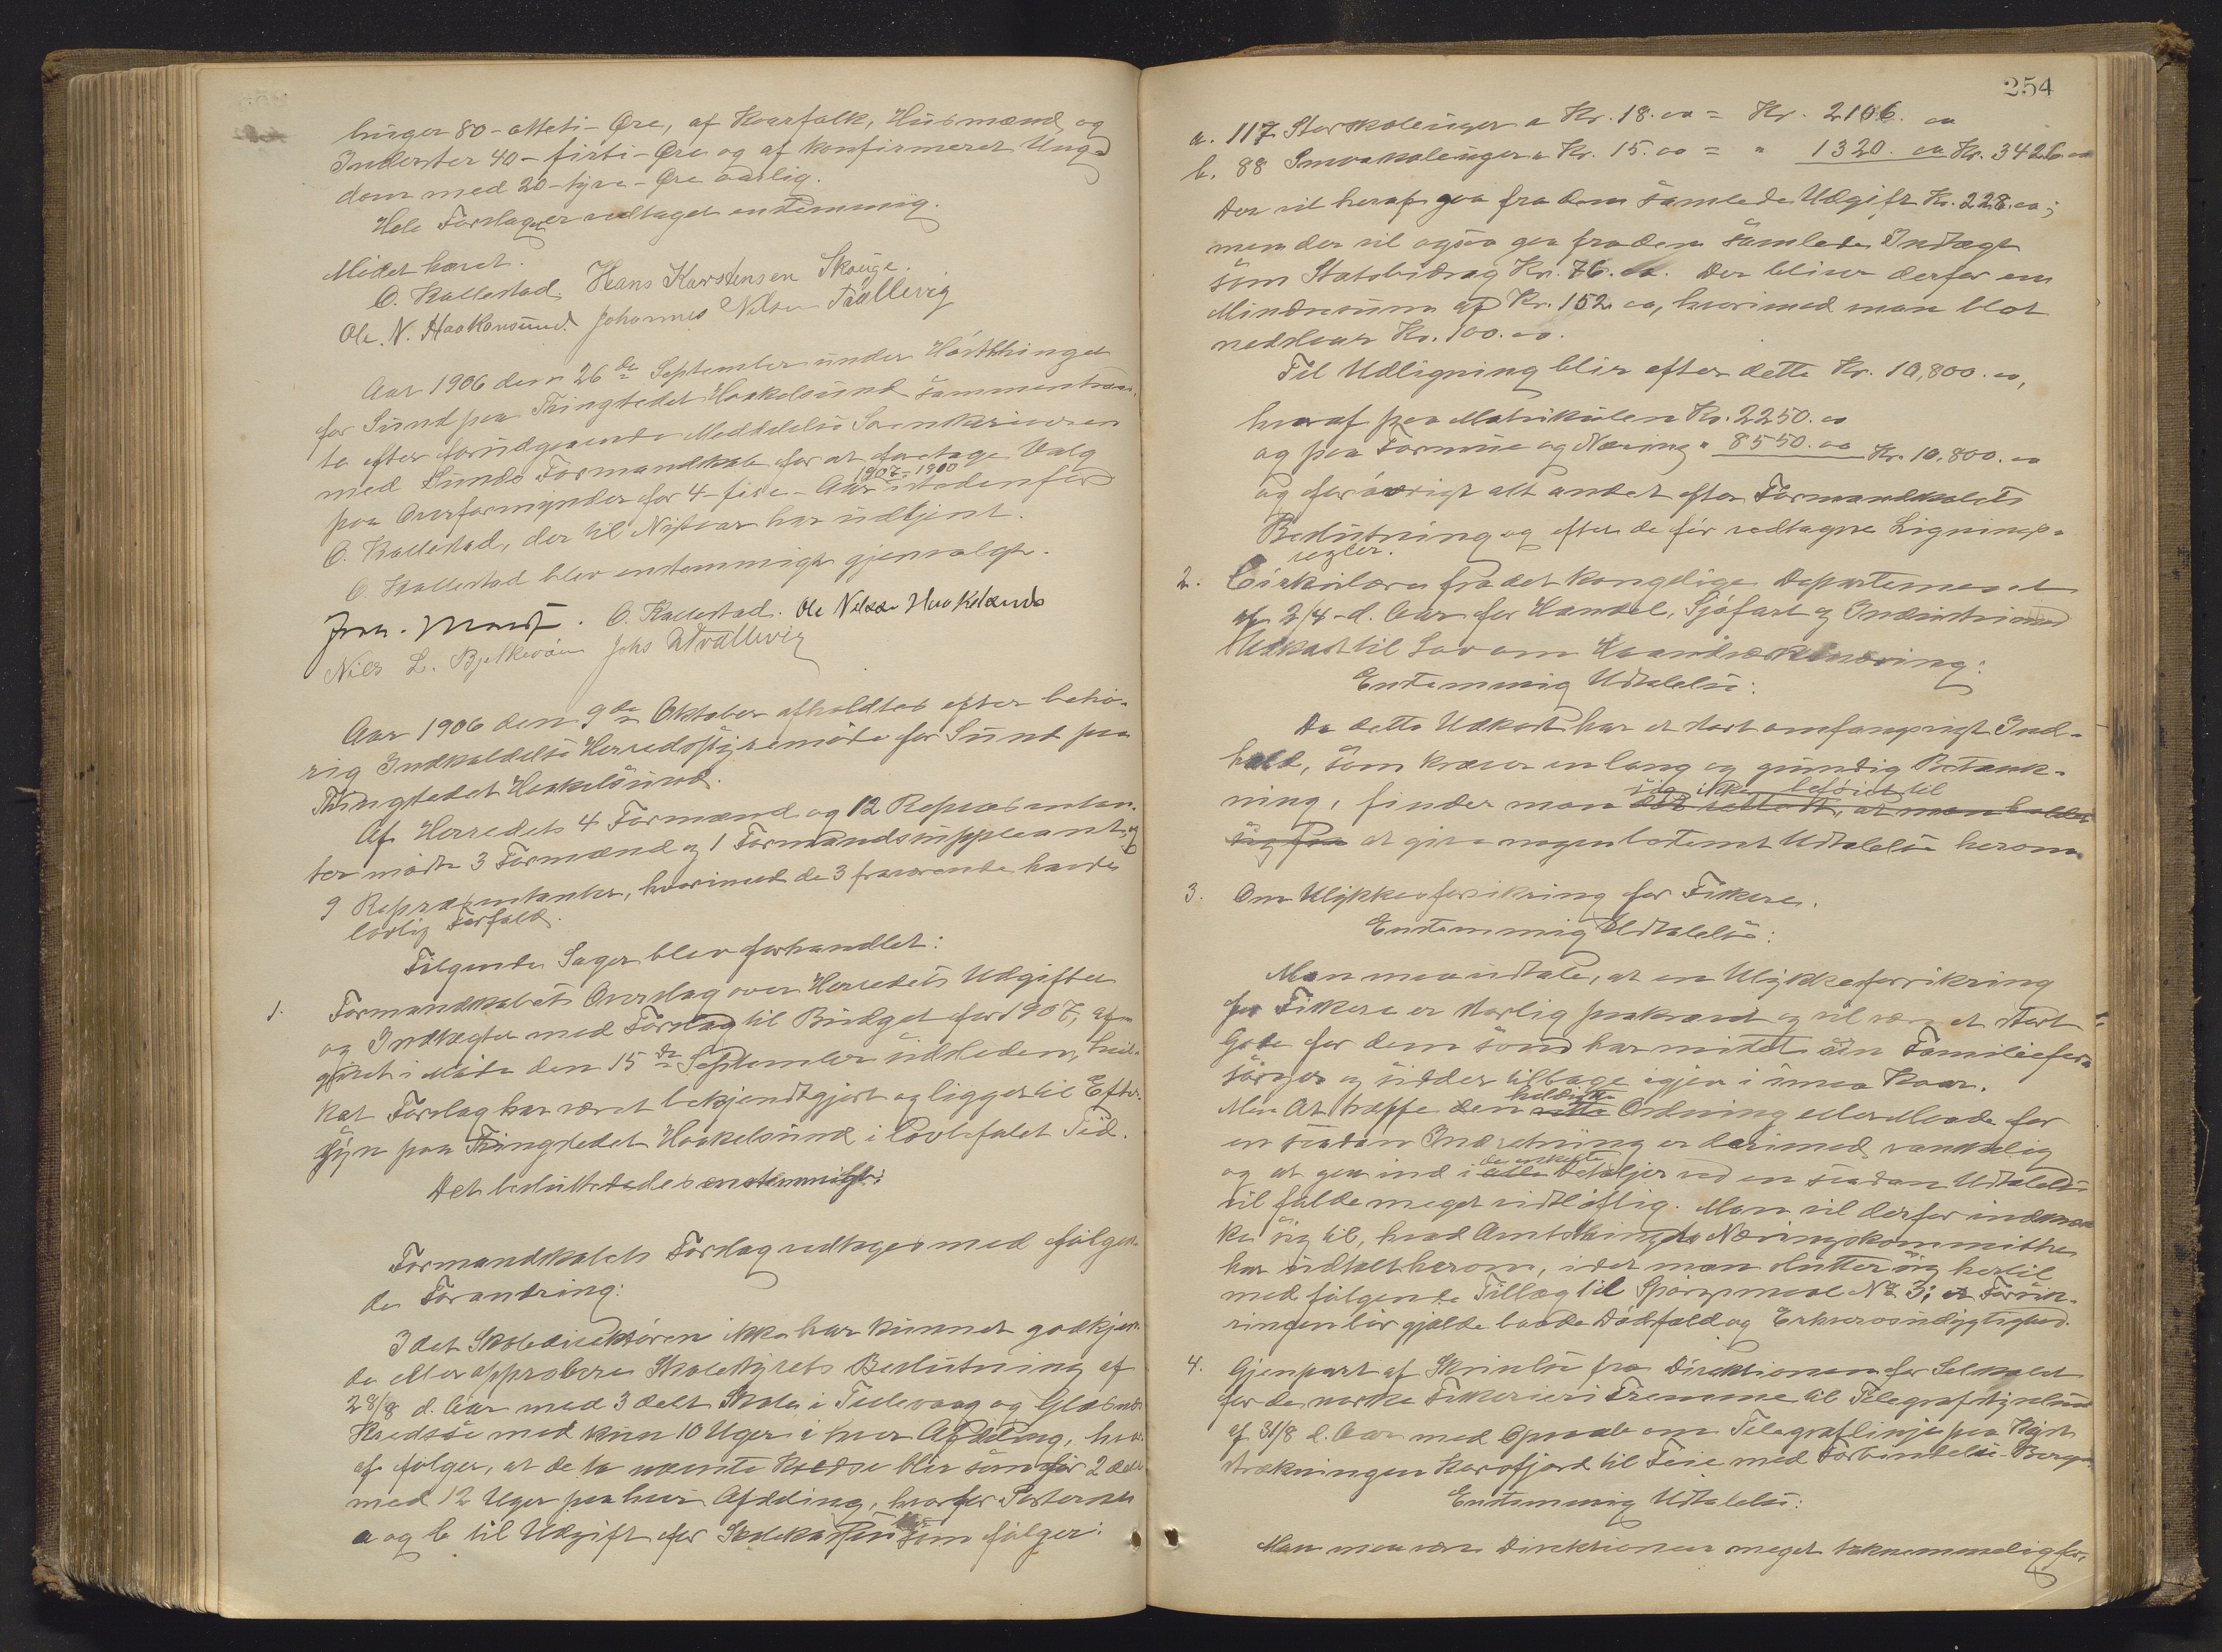 huger 80 - otteti - Øre, af Kaarfolk, Husmænd og
Inderster 40 - firti - Øre og af konfirmeret Ung=
dom med 20 - tyve - Øre aarlig.
Hele Forslaget er vedtaget enstemmig.
Mødet hævet.
O. Kallestad Hans Karstensen Skoge.
Ole. N. Haakonsund. Johannes Nilsen Trællevig
Aar 1906 den 26de September under Høstthinget
for Sund paa Thingstedet Haakelsund sammentraad-
te efter forudgaaende Meddelelse Sorenskriveren
med Sunds Formandskab for at foretage Valg
paa Overformynder for 4 - fire - Aar 1907-1910 istedenfor
O. Kallestad, der til Nytaar har udtjent.
O. Kallestad blev enstemmigt gjenvalgt.
O. Kallestad. Ole Nilsen Haakelsund
Nils L. Bjelkerøen Johs N Trællevig
Aar 1906 den 9de Oktober afholdtes efter behø-
rig Indkaldelse Herredsstyremøde for Sund paa
Thingstedet Haakelsund.
Af Herredets 4 Formænd og 12 Repræsentan-
ter mødte 3 Formænd og 1 Formandssuppleant, og
9 Repræsentanter, hvorimod de 3 fraværende havde
lovlig Forfald.
Følgende Sager blev forhandlet:
1. Formandskabets Overslag over Herredets Udgifter
og Indtægter med Forslag til Budget for 1907, af-
givet i Møde den 15de September sidstleden, hvil-
ket Forslag har været bekjendtgjort og ligget til Efter-
syn paa Thingstedet Haakelsund i lovbefalet Tid.
Det besluttedes enstemmigt:
Formandskabets Forslag vedtages med følgen-
de Forandring:
Idet Skoledirektøren ikke har kunnet godkjen-
de eller approbere Skolestyrets Beslutning af
28/8 d. Aar med 3 delt Skole i Televaag og Glesnæs
Kredse med kun 10 Uger i hver Afdeling, hvor-
af følger, at de to nævnte Kredse blir som før 2 delt
med 12 Uger paa hver Afdeling, hvorfor Posterne
a og b til Udgift for Skolekassen blir som følger:
254
a. 117 Storskoleuger a Kr. 18.00 = Kr. 2106.00
b. 88 Smaaskoleuger a Kr. 15.00 = " 1320.00 Kr. 3426.00
Der vil heraf gaa fra den samlede Udgift Kr. 228.00;
men der vil ogsaa gaa fra den samlede Indtægt
som Statsbidrag Kr. 76.00. Der bliver derfor en
Mindresum af Kr. 152.00, hvorimod man blot
nedskar Kr. 100.00.
Til Udligning blir efter dette Kr. 10,800.00,
hvoraf paa Matrikulen Kr. 2250.00
og paa Formue og Næring " 8550.00 Kr. 10,800.00
og forøvrigt alt andet efter Formandskabets
Beslutning og efter de før vedtagne Lignings-
regler.
2. Cirkulære fra det kongelige Departement
af 2/4 d. Aar for Handel, Sjøfart og Industri med
Udkast til Lov om Haandværksnæring:
Enstemmig Udtalelse:
Da dette Udkast har et stort omfangsrigt Ind-
hold, som kræver en lang og grundig Betænk-
ning, finder man sig ikke beføiet til det rettest, at man holder
sig fra at give nogen bestemt Udtalelse herom.
3. Om Ulykkesforsikring for Fiskere.
Enstemmig Udtalelse:
Man maa udtale, at en Ulykkesforsikring
for Fiskere er storlig paakrævet og vil være et stort
Gode for dem som har mistet sin Familiefor-
sørger og sidder tilbage igjen i smaa Kaar.
Men at træffe den heldigste rette Ordning eller Maade for
en saadan Indretning er derimod vanskelig
og at gaa ind i de enkelte alle Detaljer ved en saadan Udtalelse
vil falde meget vidtløftig. Man vil derfor indskræn-
ke sig til, hvad Amtsthingets Næringskommitthe
har udtalt herom, idet man slutter sig hertil
med følgende Tillæg til Spørgsmaal No 3: at Forsik-
ringen bør gjælde baade Dødsfald og Erhvervsudygtighed.
4. Gjenpart af Skrivelse fra Direktionen for Selskabet
for de norske Fiskeriers Fremme til Telegrafstyrelsen
af 31/8 d. Aar med Opraab om Telegraflinje paa Kyst-
strækningen Korsfjord til Feie med Forbindelse Bergen.
Enstemmig Udtalelse:
Man maa være Direktionen meget taknemmelig for,